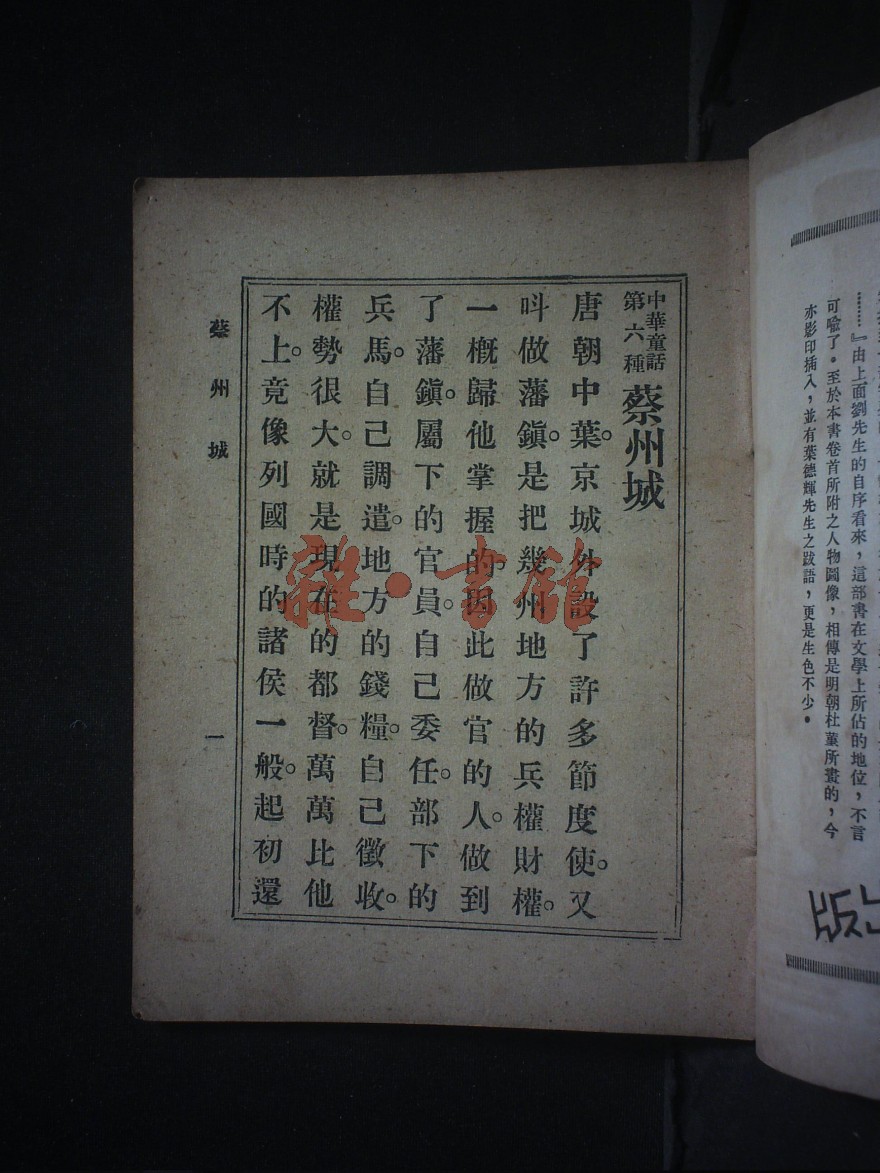 中華童話
第六種
蔡州城
唐朝中葉。京城外設了許多節度使。又
呌做藩鎭。是把幾州地方的兵權財權。
一概歸他掌握的。因此做官的人。做到
了藩鎭。屬下的官員。自己委任。部下的
兵馬。自己調遣。地方的錢糧。自己徵收。
權勢很大。就是現在的都督。萬萬比他
不上。竟像列國時的諸侯一般。起初還
蔡州城
一
雜·書館
……』由上面劉先生的自序看來，這部書在文學上所佔的地位，不言
可喩了。至於本書卷首所附之人物圖像，相傳是明朝杜菫所畫的，今
亦影印插入，並有葉德輝先生之跋語，更是生色不少。
版